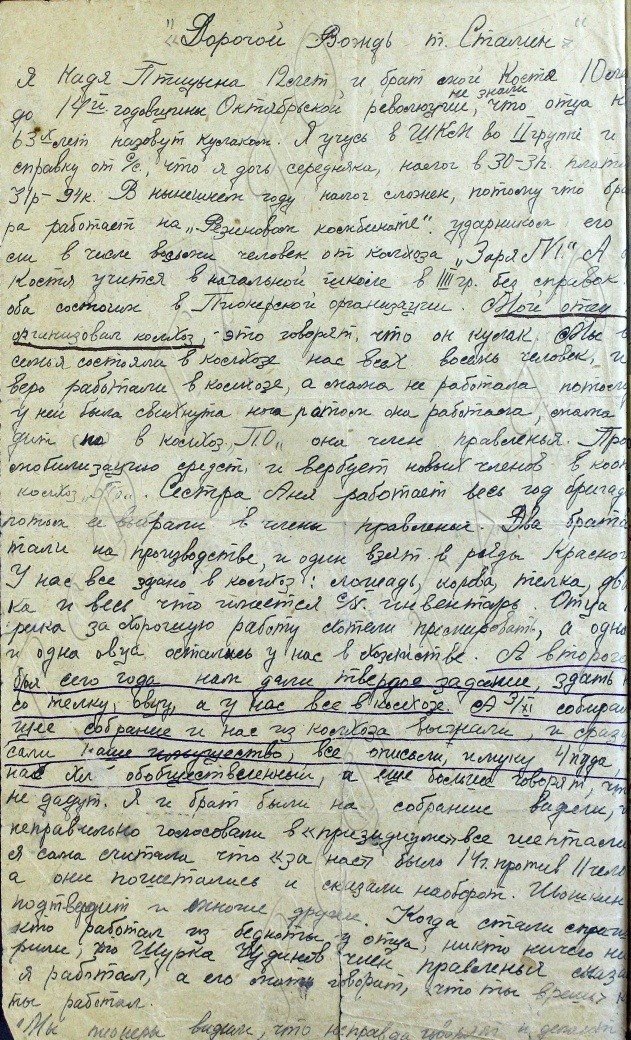 "Дорогой Вождь т. Сталин"
Я Надя Птицына 12 лет и брат мой Костя 10 ле
до 14й годовщины Октябрьской революции, не знали что отца н
63х лет назовут кулаком. Я учусь в ШКМ во II группе и
справку от с/с, что я дочь середняка, налог в 30-31г. плати
31р-94к. В нынешнем году налог сложен, потому что бра
ра работает на "Резиновом комбинате" ударником его
ли в числе восьми человек от колхоза "Заря №1." А
Костя учится в начальной школе в IIII гр. без справок.
оба состоим в Пионерской организации. Мой отец
организовал колхоз - это говорят, что он кулак. Мы в
семья состояли в колхозе нас всех восемь человек, и
веро работали в колхозе, а мама не работала потому
у ней была свихнута нога, потом она работала, мама
дит в колхоз П.О." она член правленья. Про
мобилизацию средств, и вербует новых членов в кооп
колхоз Сестра Аня работает весь год бригад
потом её выбрали в члены правленья. Два брата
тали на производстве, и один взят в ряды Красной
У нас все здано в колхоз: лошадь, корова, телка, дв
ка и весь что имеется с/х. инвентарь. Отца
за хорошую работу хотели премировать, а одно
и одна овца остались у нас в хозяйстве. А второго
бря сего года нам дали твердое задание, здать к
со телку, овцу, а у нас все в колхозе. А 3/XI собирал
щее собрание и нас из колхоза выгнали, и сразу
сали наше имущество, все описали, и муку 4 пуда
нас обобществленный, а еще больше говорят, что
не дадут. Я и брат были на собрание видели, ч
неправильно голосовали в «президиуме» все шептали
я сама считала что «за нас» было 14ч. против 11 чел
а они пошептались и сказали наоборот.
подтвердит и многие другие. Когда стали спраши
кто работал из бедноты у отца, никто ничего не
рили, Шурка Чудинов член правленья сказа
я работал, а его мать говорит, что ты врешь н
ты работал.
Мы пионеры видим, что неправда говорят и делают